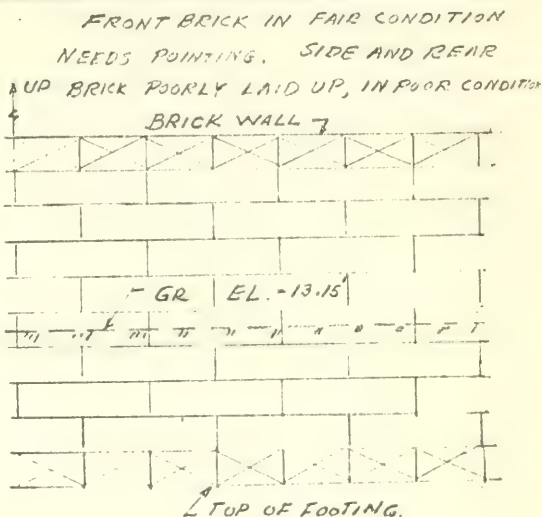 FRONT BRICK IN FAIR CONDITION
NEEDS POINTING. SIDE AND REAR
UP BRICK POORLY LAID UP, IN POOR CONDITION
BRICK WALL
GR EL. -13.15'
TOP OF FOOTING.